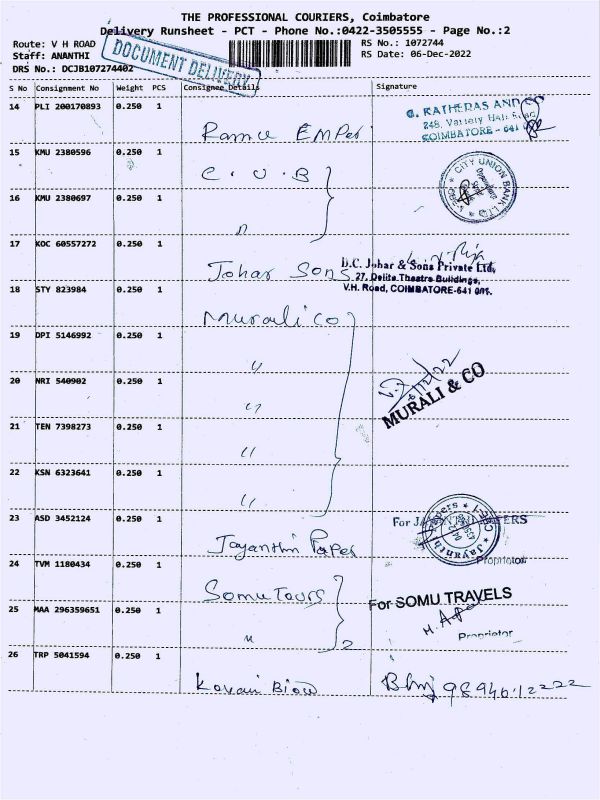 THE PROFESSIONAL COURIERS, Coimbatore
Delivery Runsheet - PCT - Phone No.:0422-3505555 - Page No.:2
Route: V H ROAD
RS No.: 1072744
Staff: ANANTHI
RS Date: 06-Dec-2022
DRS No.: DCJB107274402
DOCUMENT DELIVERY
S No Consignment No Weight PCS Consignee Details Signature
14 PLI 200170893 0.250 1
G. KATHERAS AND CO
248, Variety Hall Road
COIMBATORE - 641
Ramu
15 KMU 2380596 0.250 1
C. U. B
CITY UNION BANK LTD
16 KMU 2380697 0.250 1
"
17 KOC 60557272 0.250 1
Johar Sons
D.C. Johar & Sons Private Ltd,
27, Delite Theatre Buildings,
V.H. Road, COIMBATORE-641 001.
18 STY 823984 0.250 1
Murali Co
19 DPI 5146992 0.250 1
"
20 NRI 540902 0.250 1
"
6/12/22
MURALI & CO
21 TEN 7398273 0.250 1
"
22 KSN 6323641 0.250 1
"
23 ASD 3452124 0.250 1
Jayanthi Paper
For JAYANTHI PAPERS
Proprietor
24 TVM 1180434 0.250 1
Somu Tours
For SOMU TRAVELS
25 MAA 296359651 0.250 1
" 2
Proprietor
26 TRP 5041594 0.250 1
Kovai
9894612222